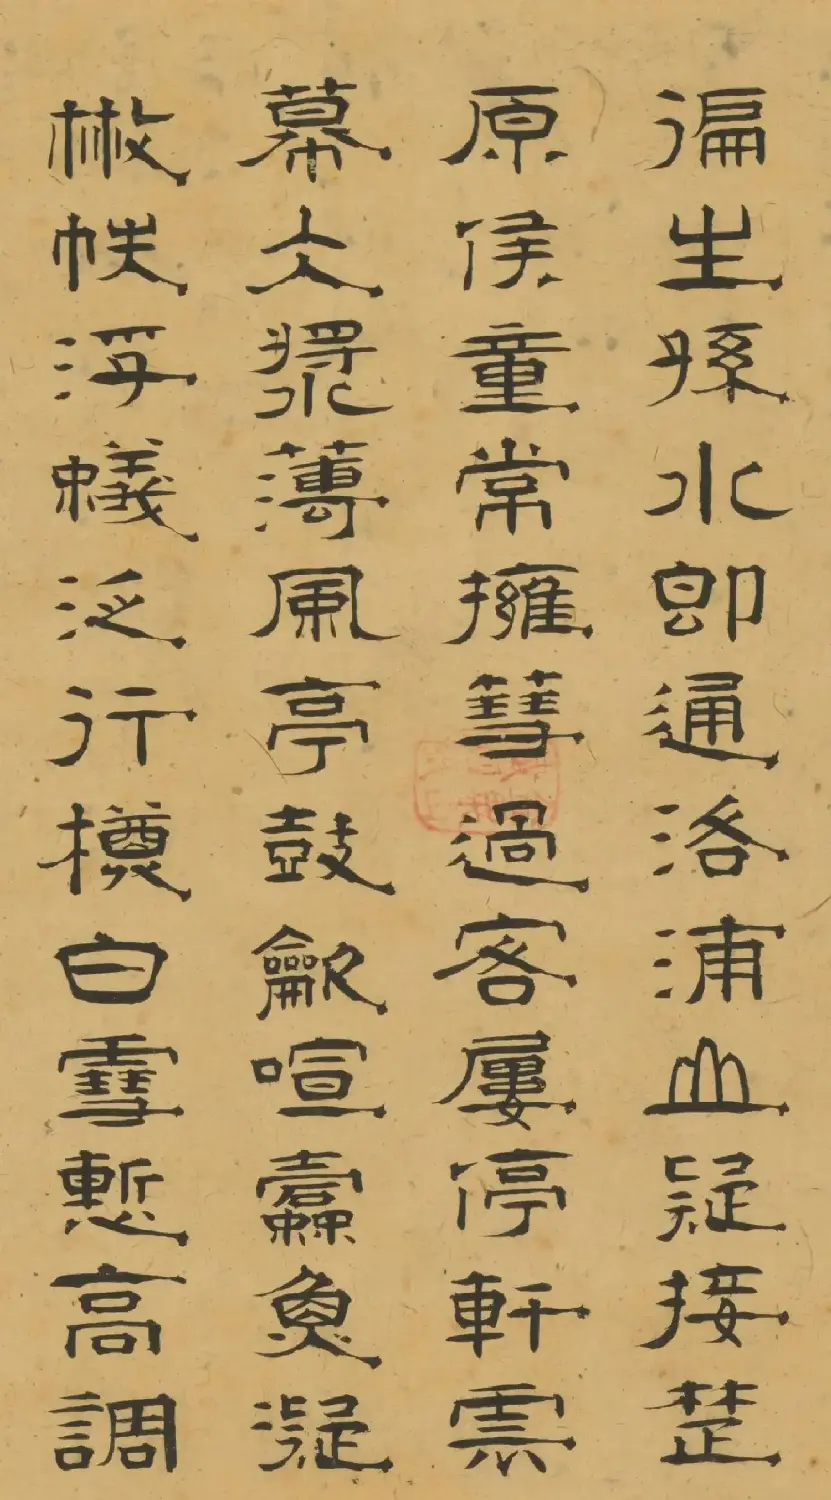 徧生孫水即通洛浦山疑接楚
原侯童常擁彗過客屢停軒雲
幕仌漿薄風亭鼓龡喧蠹魚凝
㪔帙浮蟻泛行樽白雪慙高調